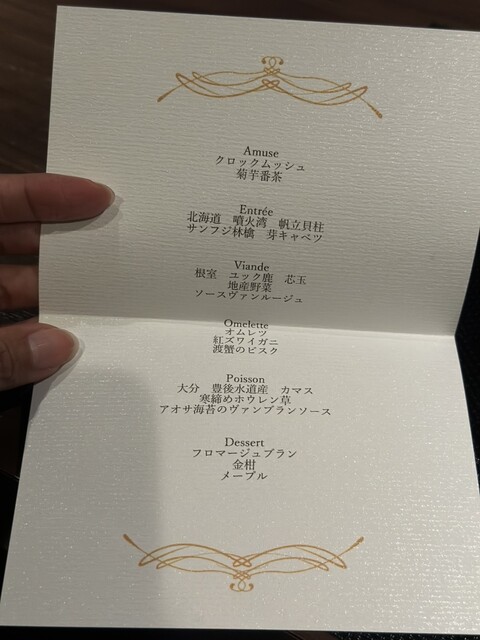 Amuse
クロックムッシュ
菊芋番茶
Entrée
北海道　噴火湾　帆立貝柱
サンフジ林檎　芽キャベツ
Viande
根室　ユック鹿　芯玉
地産野菜
ソースヴァンルージュ
Omelette
オムレツ
紅ズワイガニ
渡蟹のビスク
Poisson
大分　豊後水道産　カマス
寒締めホウレン草
アオサ海苔のヴァンブランソース
Dessert
フロマージュブラン
金柑
メープル